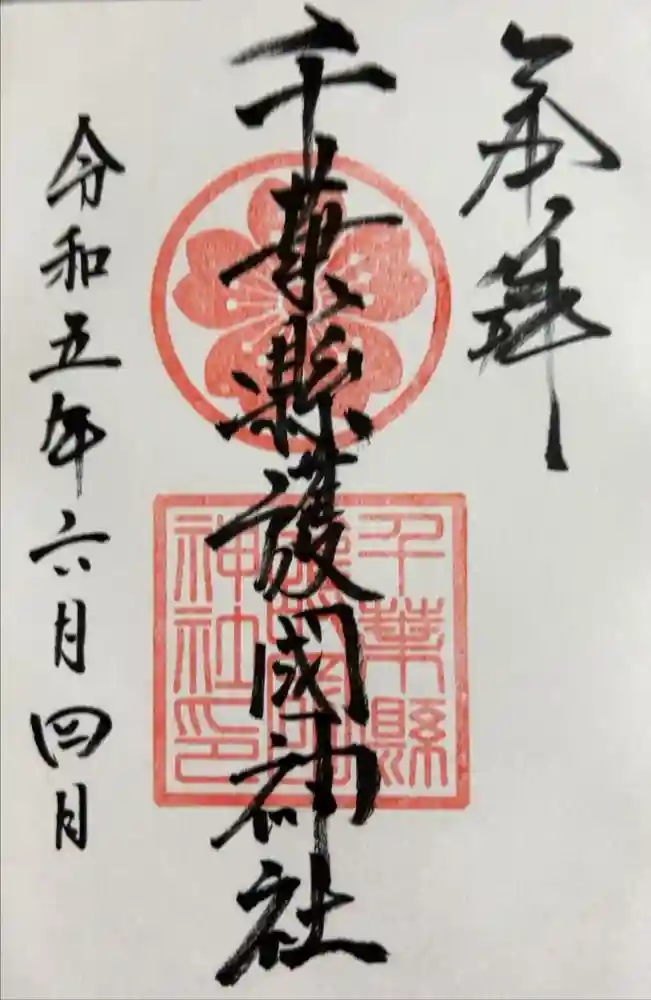 奉拝
千葉縣護國神社
千葉縣
護國
神社印
令和五年六月四月